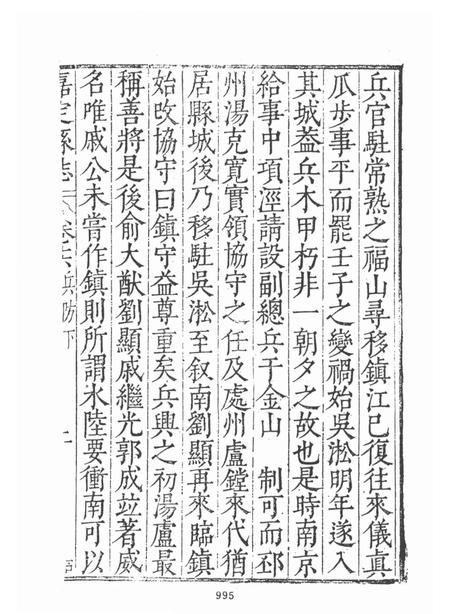 兵官駐常熟之福山尋移鎮江已復往來儀真
瓜步事平而罷壬子之變禍始吳淞明年遂入
其城蓋兵木甲朽非一朝夕之故也是時南京
給事中項涇請設副總兵于金山　制可而邳
州湯克寬實領協守之任及處州盧鏜來代猶
居縣城後乃移駐吳淞至叙南劉顯再來臨鎮
始改協守曰鎮守益尊重矣兵興之初湯盧最
稱善將是後俞大猷劉顯戚繼光郭成竝著威
名唯戚公未嘗作鎮則所謂水陸要衝南可以
嘉定縣志 卷十六兵防下
995